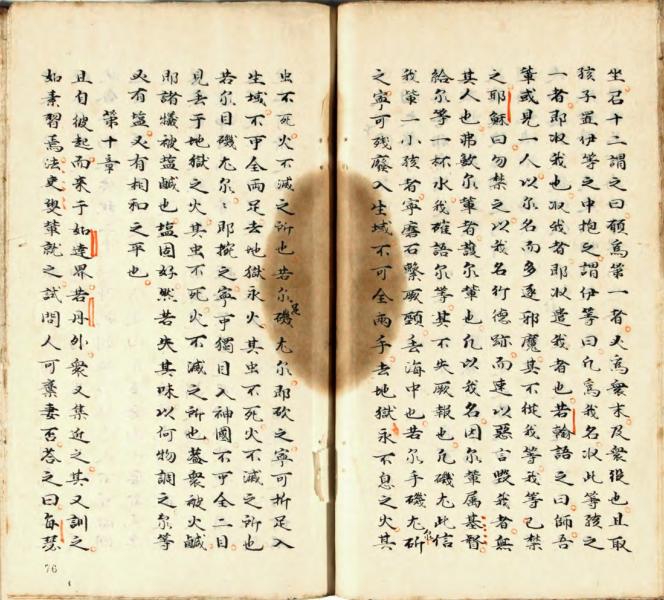 坐召十二謂之曰願爲第一者又爲衆末及衆役也且取
孩子置伊等之中抱之謂伊等曰凡爲我名収此等孩之
一者即収我也収我者即収遣我者也若翰語之曰師吾
輩或見一人以尔名而多逐邪魔其不從我等我等已禁
之耶穌曰勿禁之以我名行德跡而速以惡言毀我者無
其人也弗敵尔輩者護尔輩也凡以我名因尔輩属基督
給尔等一杯水我確語尔等其不失厥報也凡磯尤此信
我輩一小孩者寧磨石繫厥頸丢海中也若尔手磯尤尔斫
之寧可殘廢入生域不可全兩手去地獄永不息之火其
虫不死火不滅之所也若尔足磯尤尔即砍之寧可折足入
生域不可全兩足去地獄永火其虫不死火不滅之所也
若尔目磯尤尔即捥之寧可獨目入神國不可全二目
見丢于地獄之火其虫不死火不滅之所也蓋衆被火鹹
即諸犧被塩鹹也塩固好然若失其味以何物調之尔等
必有塩又有相和之平也
第十章
且自彼起而來于如達界若丹外衆又集近之其又訓之
如素習焉法吏叟輩就之試問人可棄妻否荅之曰每瑟
76